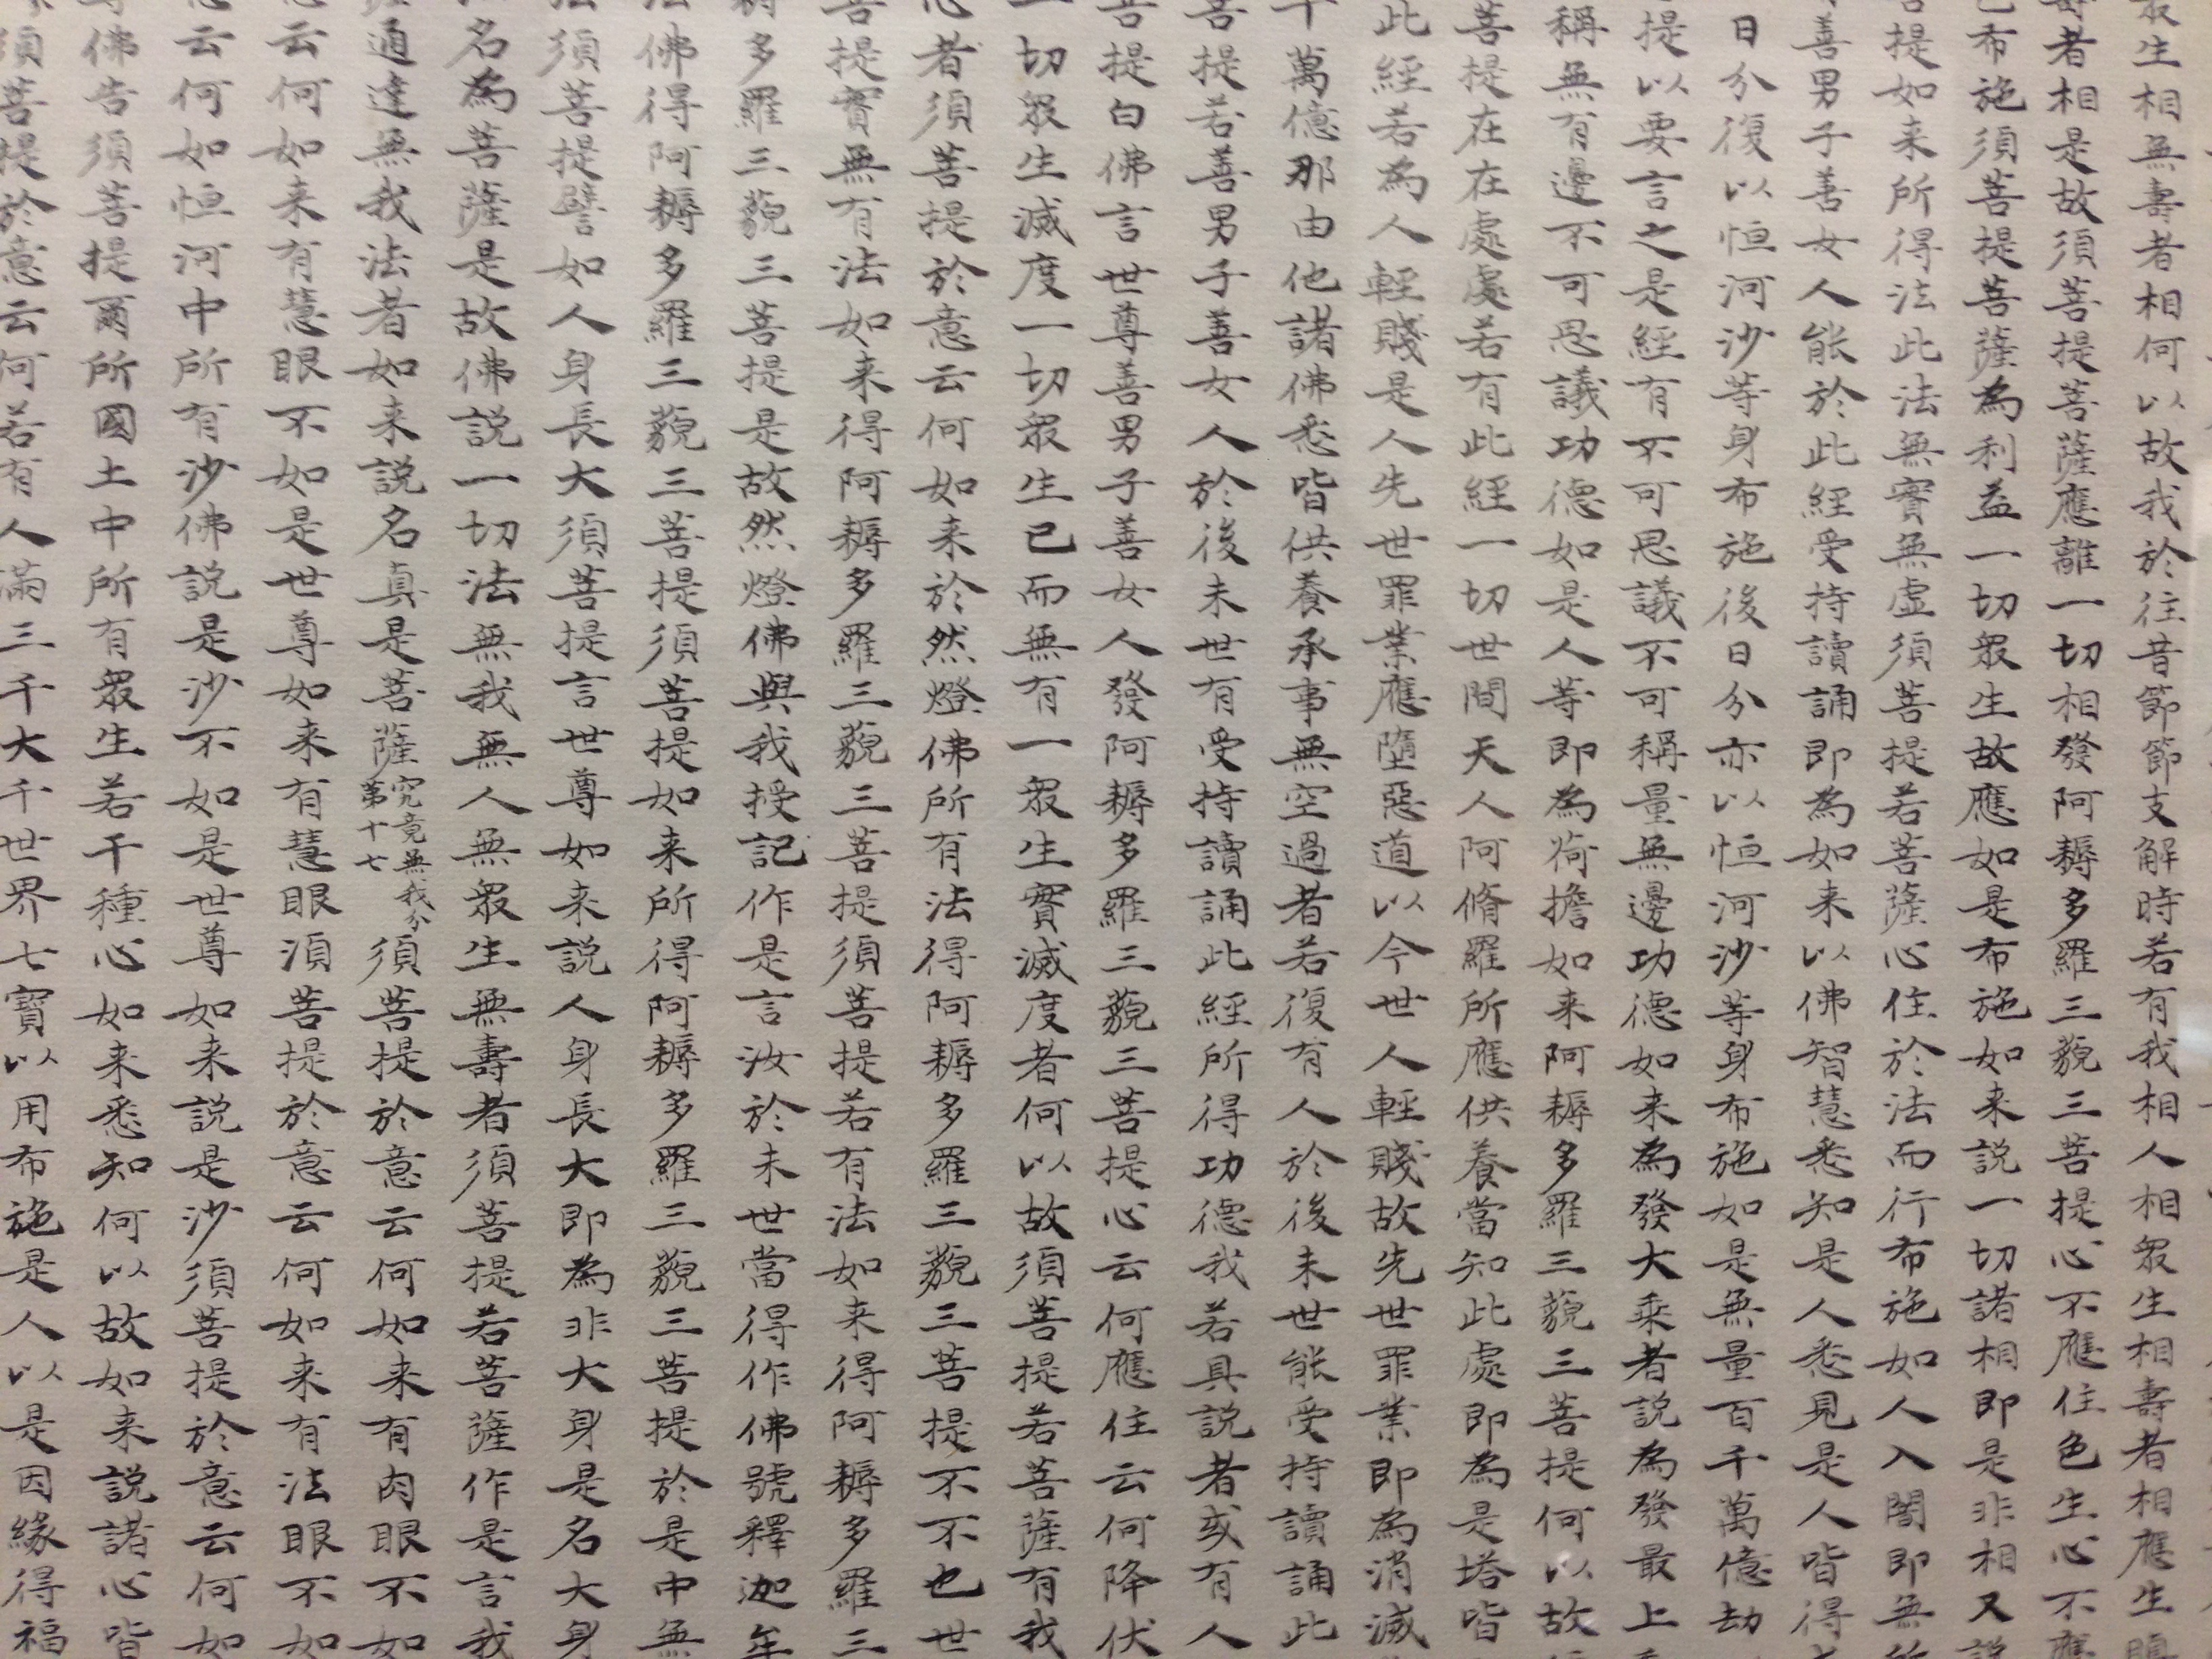 眾生相無壽者相何以故我於往昔節節支解時若有我相人相眾生相壽者相應生瞋
壽者相是故須菩提菩薩應離一切相發阿耨多羅三藐三菩提心不應住色生心不應
布施須菩提菩薩為利益一切眾生故應如是布施如来説一切諸相即是非相又説
菩提如来所得法此法無實無虛須菩提若菩薩心住於法而行布施如人入闇即無所
善男子善女人能於此經受持讀誦即為如来以佛智慧悉知是人悉見是人皆得
日分復以恒河沙等身布施後日分亦以恒河沙等身布施如是無量百千萬億劫
提以要言之是經有不可思議不可稱量無邊功德如来為發大乘者説為發最上
稱無有邊不可思議功德如是人等即為荷擔如来阿耨多羅三藐三菩提何以故
菩提在在處處若有此經一切世間天人阿脩羅所應供養當知此處即為是塔皆
此經若為人輕賤是人先世罪業應墮惡道以今世人輕賤故先世罪業即為消滅
千萬億那由他諸佛悉皆供養承事無空過者若復有人於後末世能受持讀誦此
菩提若善男子善女人於後末世有受持讀誦此經所得功德我若具説者或有人
菩提白佛言世尊善男子善女人發阿耨多羅三藐三菩提心云何應住云何降伏
一切眾生滅度一切眾生已而無有一眾生實滅度者何以故須菩提若菩薩有我
心者須菩提於意云何如来於然燈佛所有法得阿耨多羅三藐三菩提不不也世
菩提實無有法如来得阿耨多羅三藐三菩提須菩提若有法如来得阿耨多羅三
耨多羅三藐三菩提是故然燈佛與我授記作是言汝於未世當得作佛號釋迦牟
法佛得阿耨多羅三藐三菩提須菩提如来所得阿耨多羅三藐三菩提於是中無
法須菩提譬如人身長大須菩提言世尊如来説人身長大即為非大身是名大身
名為菩薩是故佛説一切法無我無人無眾生無壽者須菩提若菩薩作是言我
通達無我法者如来説名真是菩薩究竟無我分第十七須菩提於意云何如来有肉眼不如
云何如来有慧眼不如是世尊如来有慧眼須菩提於意云何如来有法眼不如
意云何如恒河中所有沙佛説是沙不如是世尊如来説是沙須菩提於意云何如
佛告須菩提爾所國土中所有眾生若干種心如来悉知何以故如来説諸心皆
須菩提於意云何若有人滿三千大千世界七寶以用布施是人以是因緣得福